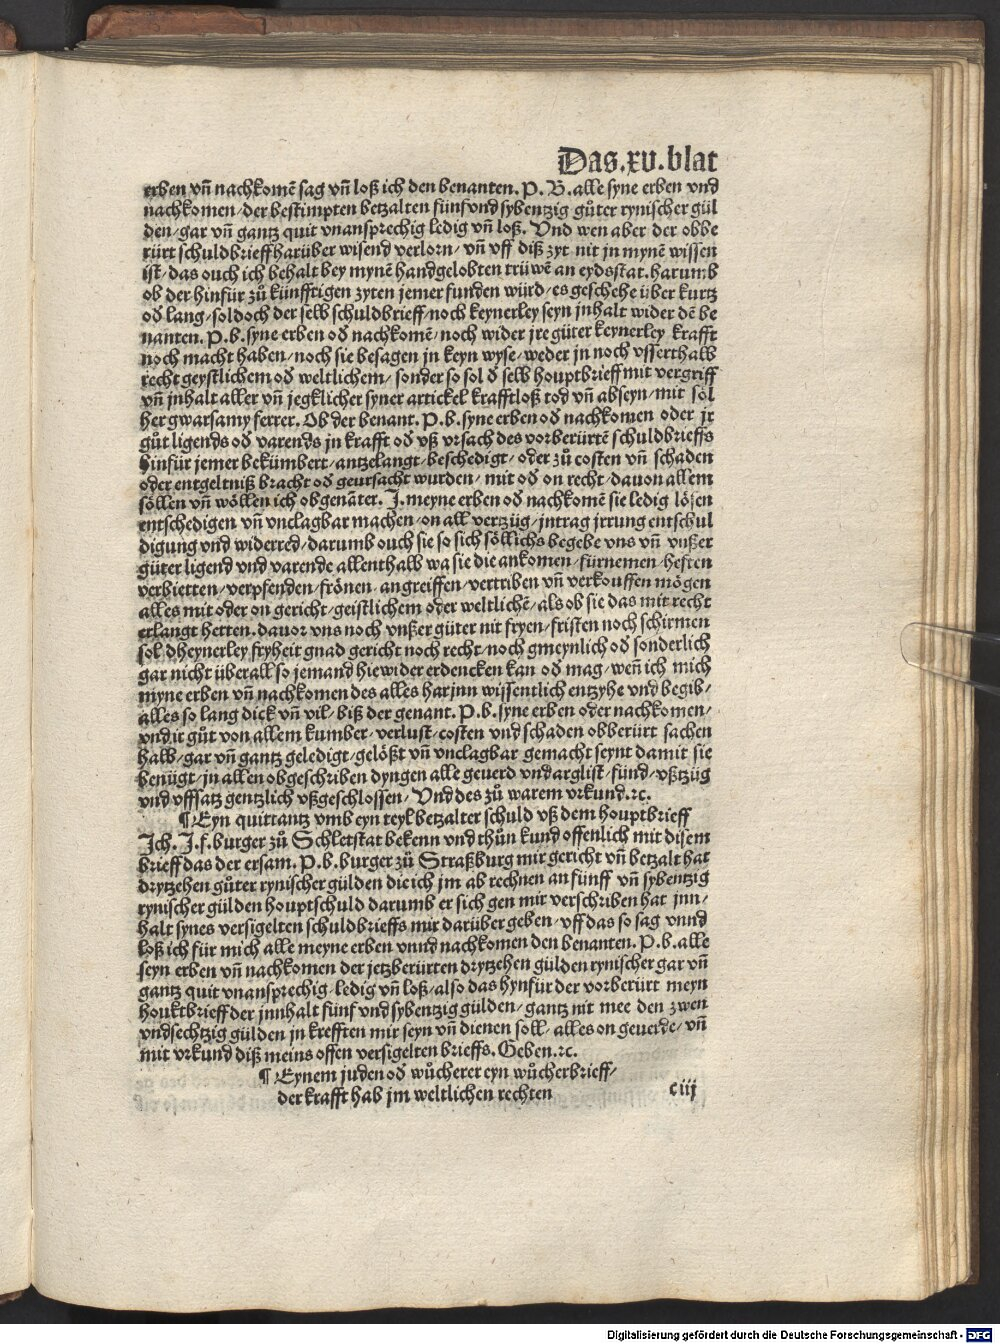 Das.xv.blat
erben vñ nachkomē sag vñ loß ich den benanten. P. B. alle syne erben vnd
nachkomen/ der bestimpten betzalten fünfvnd sybentzig gůter rynischer gül
den/ gar vñ gantz quit vnansprechig ledig vñ loß. Vnd wen aber der obbe
rürt schuldbrieff harüber wisend verlorn/ vñ vff diß zyt nit in mynē wissen
ist/ das ouch ich behalt bey mynē handgelobten trüwē an eydsstat. harumb
ob der hinfür zů künfftigen zyten jemer funden würd/ es geschehe über kurtz
oď lang/ sol doch der selb schuldbrieff/ noch keynerley seyn jnhalt wider dē be
nanten. P. b. syne erben oď nachkomē/ noch wider jre güter keynerley krafft
noch macht haben/ noch sie besagen jn keyn wyse/ weder jn noch vsserthalb
recht geystlichem oď weltlichem/ sonder so sol ď selb houptbrieff mit vergriff
vñ jnhalt aller vñ jegklicher syner artickel krafftloß tod vñ abseyn/ mit söl
her gwarsamy ferrer. Ob der benant. P. b. syne erben oď nachkomen oder jr
gůt ligends oď varends jn krafft oď vß vrsach des vorberürtē schuldbrieffs
hinfür jemer bekümbert/ antzelangt/ beschedigt/ oder zů costen vñ schaden
oder entgeltniß bracht oď geursacht wurden/ mit oď on recht/ dauon allem
söllen vñ wöllen ich obgenāter. J. meyne erben oď nachkomē sie ledig lösen
entschedigen vñ vnclagbar machen/ on all vertzüg/ jntrag jrrung entschul
digung vnd widerred/ darumb ouch sie so sich söllichs begebe vns vñ vnßer
güter ligend vnd varende allenthalb wa sie die ankomen/ fürnemen/ heften
verbietten/ verpfenden/ frönen/ angreiffen/ vertriben vñ verkouffen mögen
alles mit oder on gericht/ geistlichem oder weltlichē/ als ob sie das mit recht
erlangt hetten. dauor vns noch vnßer güter nit fryen/ fristen noch schirmen
sol dheynerley fryheit gnad gericht noch recht/ noch gmeynlich oď sonderlich
gar nicht überall so jemand hiewider erdencken kan oď mag/ weñ ich mich
myne erben vñ nachkomen des alles harjnn wissentlich entzyhe vnd begib/
alles so lang dick vñ vil/ biß der genant. P. b. syne erben oder nachkomen/
vnd ir gůt von allem kumber/ verlust/ costen vnd schaden obberürt sachen
halb/ gar vñ gantz geledigt/ gelößt vñ vnclagbar gemacht seynt damit sie
benügt/ jn allen obgeschriben dyngen alle geuerd vnd arglist/ fünd/ vßtzüg
vnd vffsatz gentzlich vßgeschlossen/ Vnd des zů warem vrkund.⁊c.
¶ Eyn quittantz vmb eyn teyl betzalter schuld vß dem houptbrieff
Jch. J. f. burger zů Schletstat bekenn vnd thůn kund offenlich mit disem
brieff das der ersam. P. b. burger zů Straßburg mir gericht vñ betzalt hat
drytzehen gůter rynischer gülden die ich jm ab rechnen an fünff vñ sybentzig
rynischer gülden houptschuld darumb er sich gen mir verschriben hat jnn/
halt synes versigelten schuldbrieffs mir darüber geben/ vff das so sag vnnd
loß ich für mich alle meyne erben vnnd nachkomen den benanten. P. b. alle
seyn erben vñ nachkomen der jetzberürten drytzehen gülden rynischer gar vñ
gantz quit vnansprechig/ ledig vñ loß/ also das hynfür der vorberürt meyn
houktbrieff der jnnhalt fünf vnd sybentzig gülden/ gantz nit mee den zwen
vndsechtzig gülden jn krefften mir seyn vñ dienen soll/ alles on geuerde/ vñ
mit vrkund diß meins offen versigelten brieffs. Geben.⁊c.
¶ Eynem juden oď wůcherer eyn wůcherbrieff/
der krafft hab jm weltlichen rechten
c iij
Digitalisierung gefördert durch die Deutsche Forschungsgemeinschaft - DFG